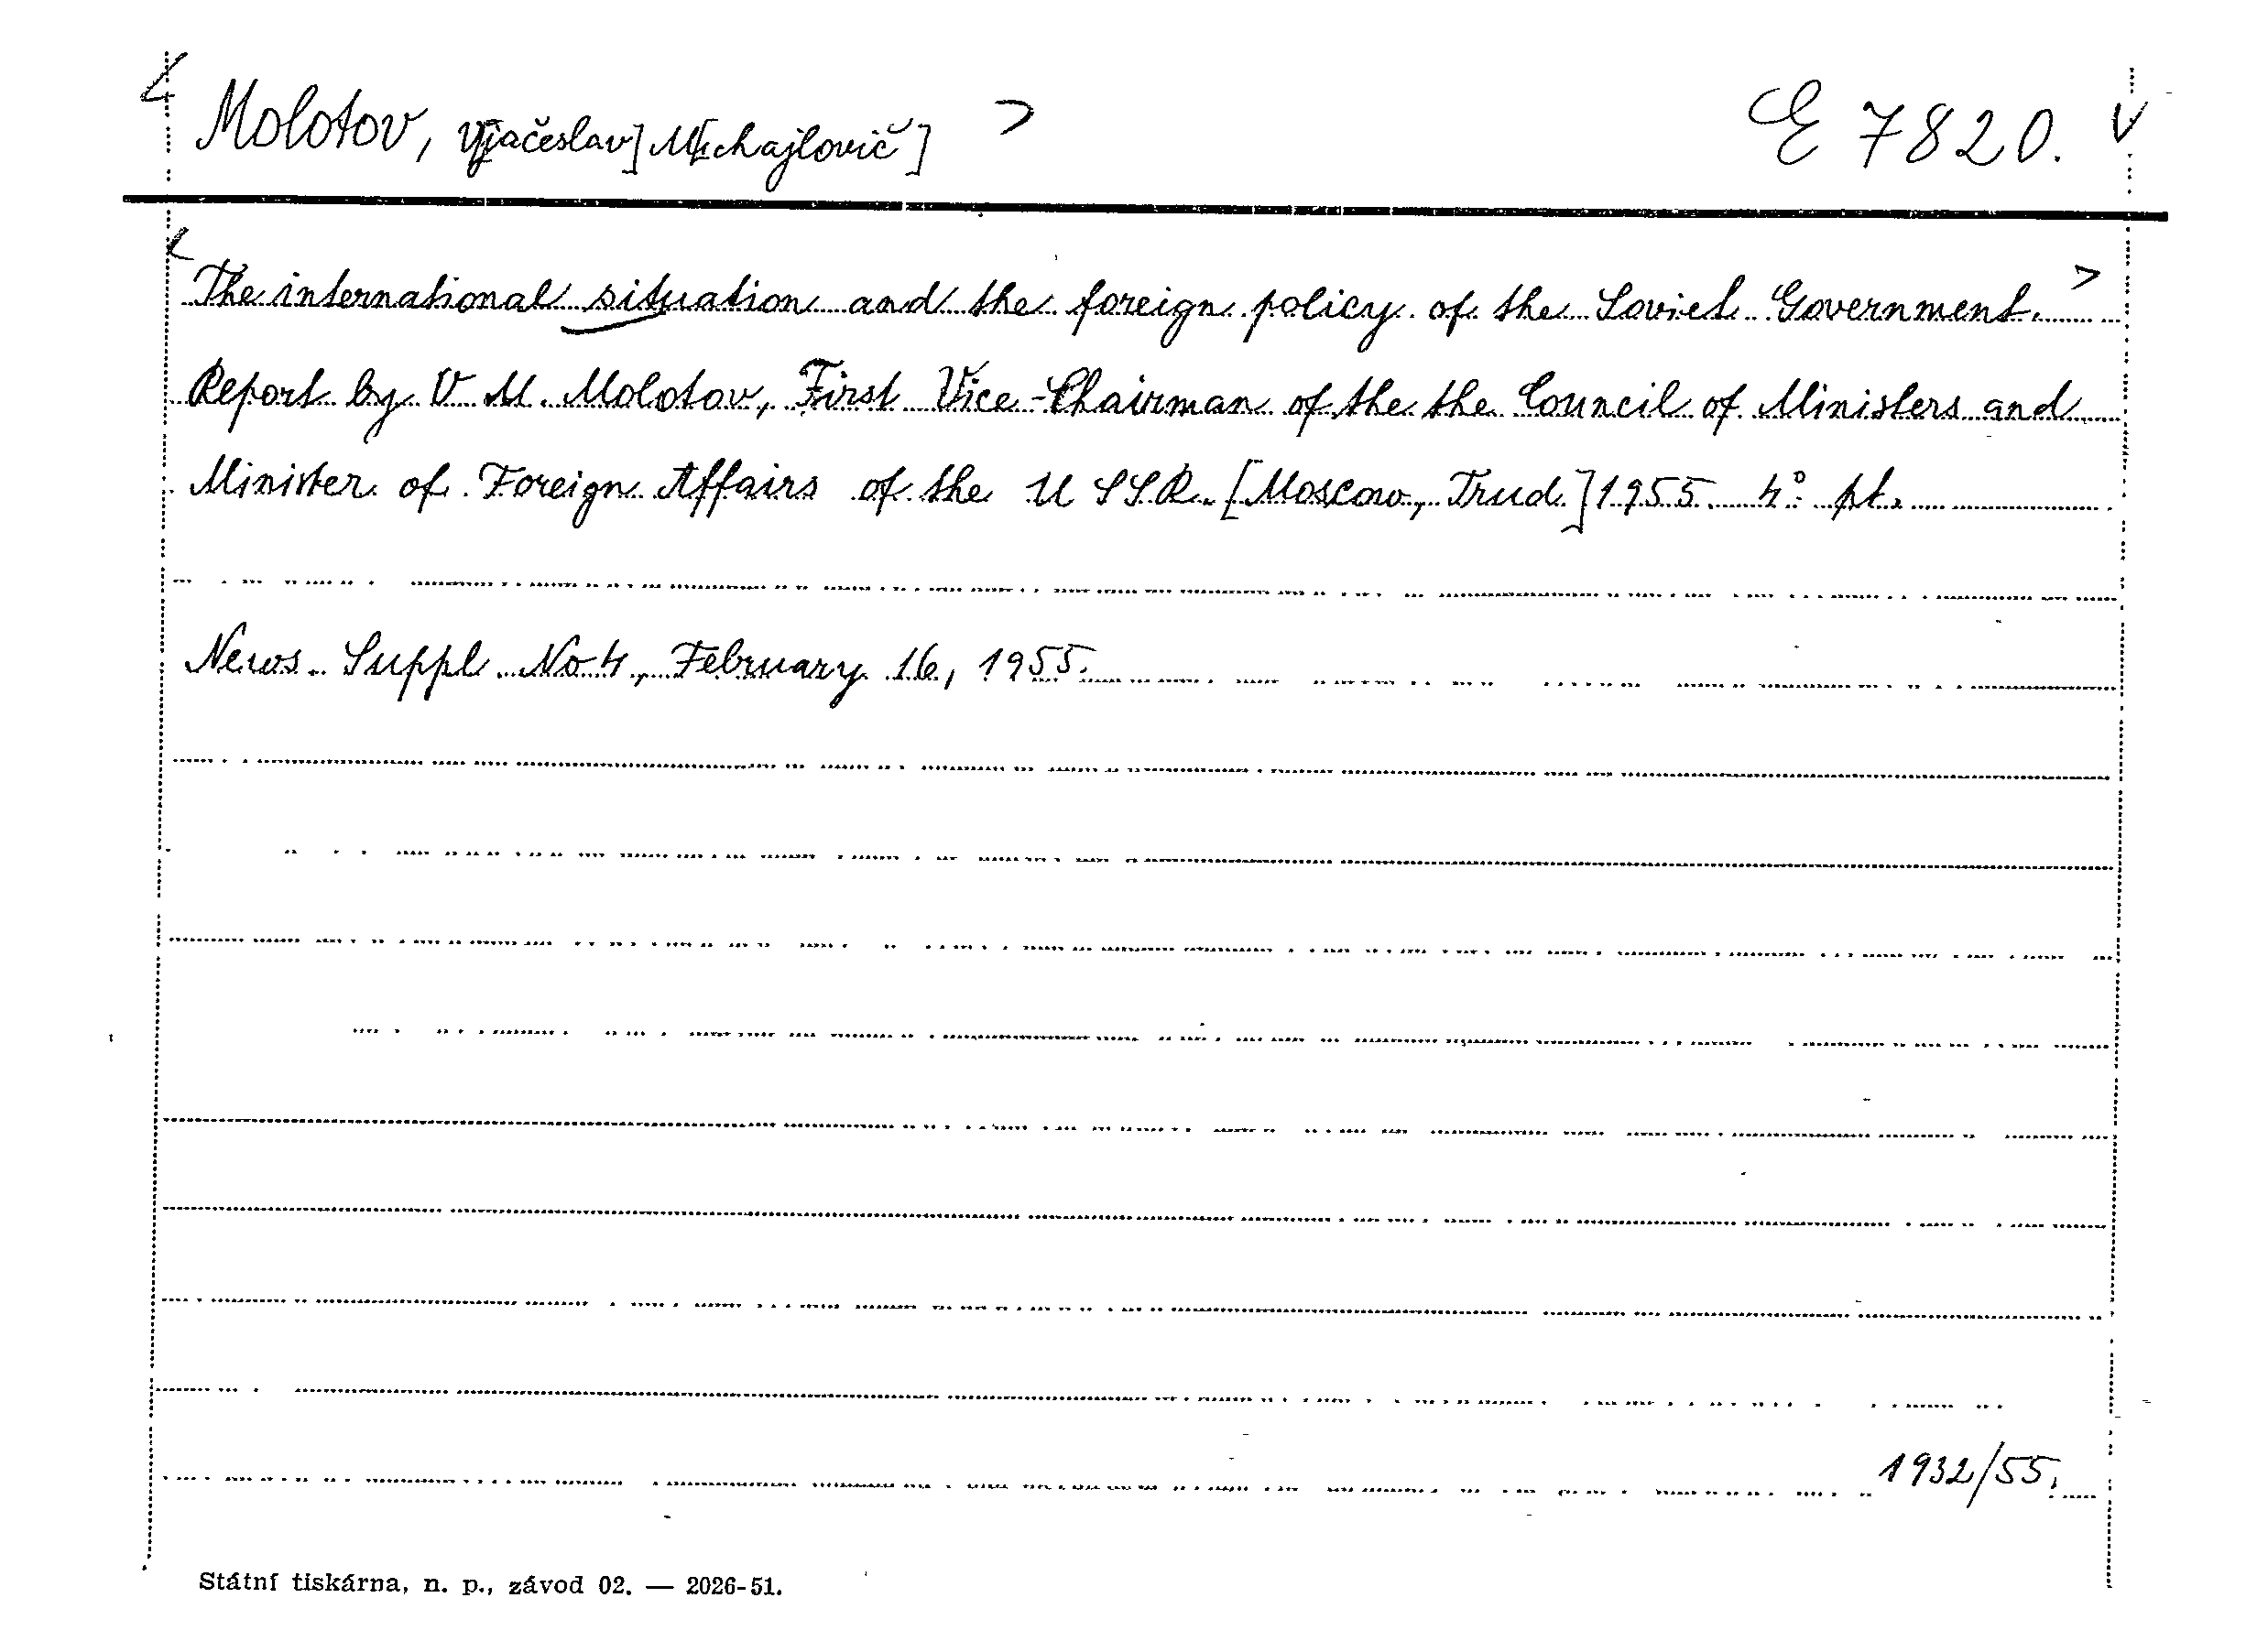 < Molotov, V[jačeslav] M[ichajlovič] > E 7820. v
< The international situation and the foreign policy of the Soviet Government. >
Report by V. M. Molotov, First Vice-Chairman of the the Council of Ministers and
Minister of Foreign Affairs of the USSR. [Moscow, Trud.] 1955. 4° pt.
News. Suppl. No 4, February 16, 1955.
1932/55.
Státní tiskárna, n. p., závod 02. — 2026-51.